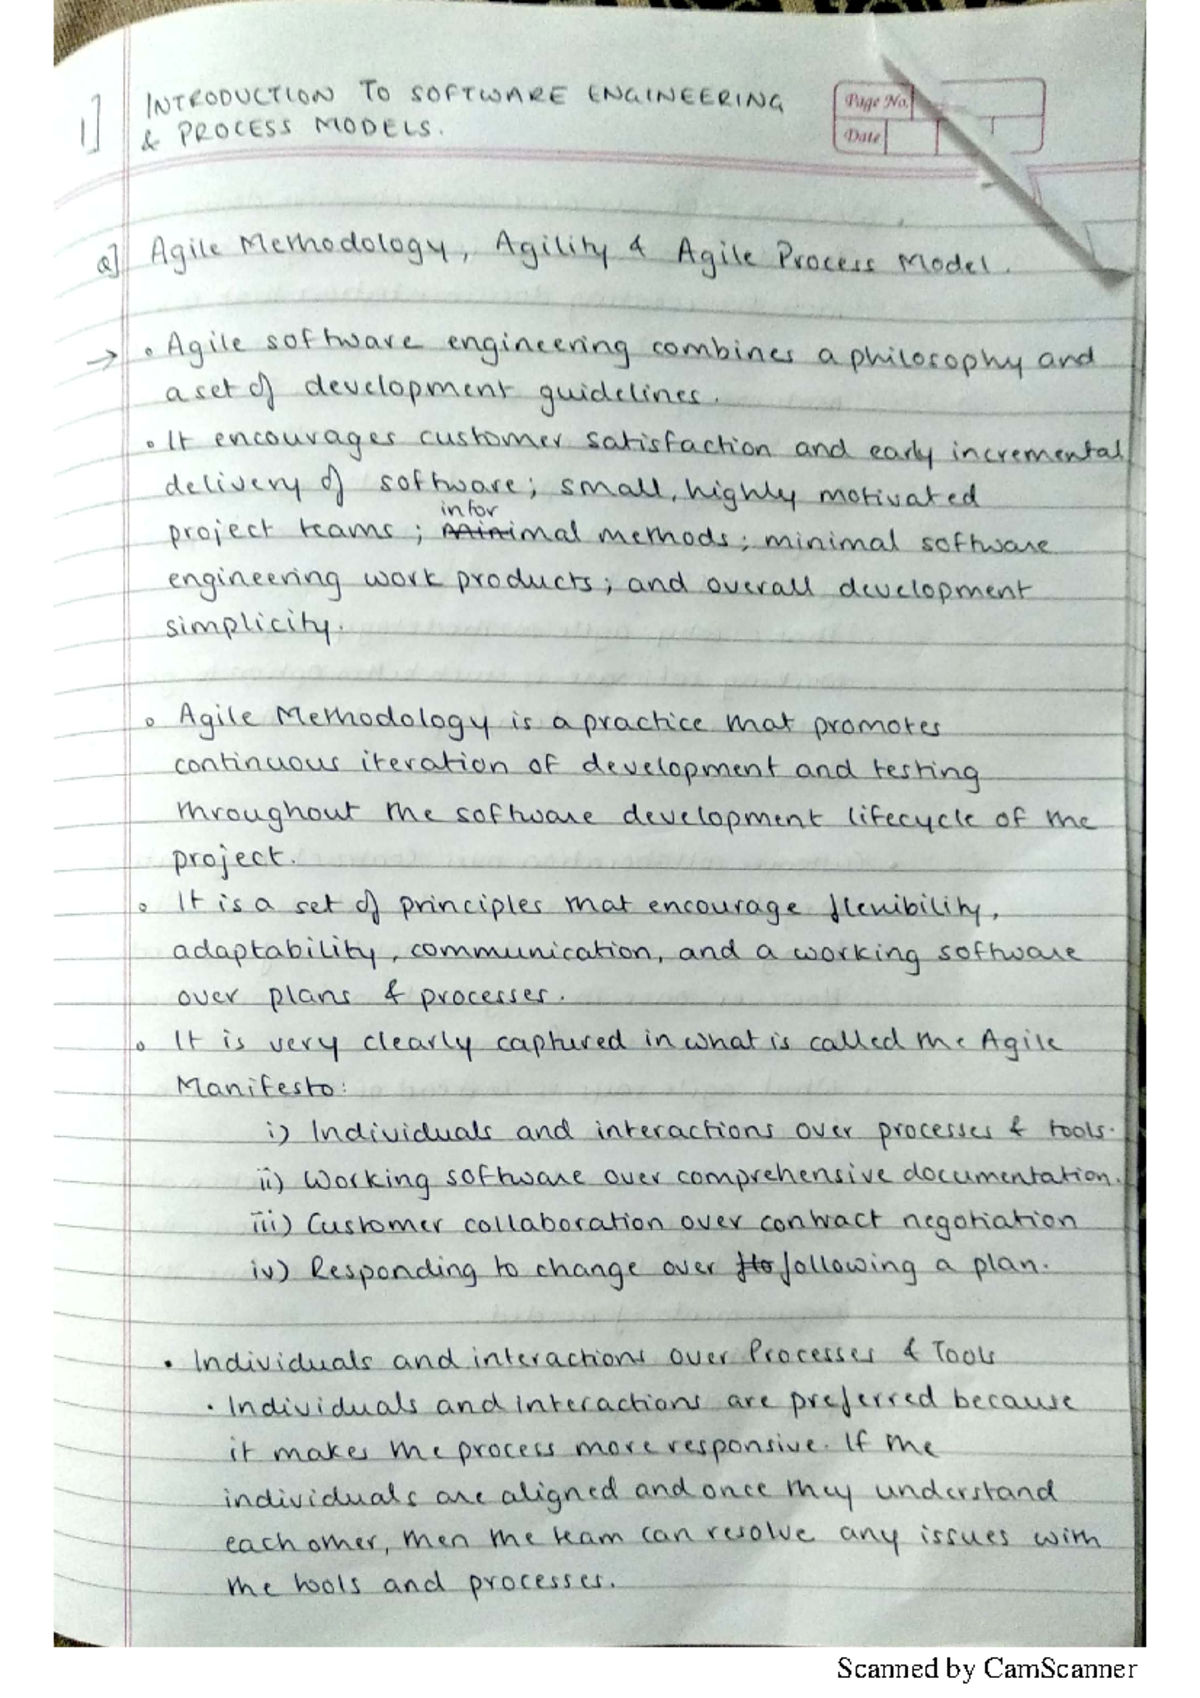 1] INTRODUCTION TO SOFTWARE ENGINEERING
& PROCESS MODELS.
Page No.
Date
Q] Agile Methodology, Agility & Agile Process Model.
→ • Agile software engineering combines a philosophy and
a set of development guidelines.
• It encourages customer satisfaction and early incremental
delivery of software; small, highly motivated
infor
project teams; minimal methods; minimal software
engineering work products; and overall development
simplicity.
• Agile Methodology is a practice that promotes
continuous iteration of development and testing
throughout the software development lifecycle of the
project.
• It is a set of principles that encourage flexibility,
adaptability, communication, and a working software
over plans & processes.
• It is very clearly captured in what is called the Agile
Manifesto:
i) Individuals and interactions over processes & tools.
ii) Working software over comprehensive documentation.
iii) Customer collaboration over contract negotiation
iv) Responding to change over following a plan.
• Individuals and interactions over Processes & Tools
• Individuals and interactions are preferred because
it makes the process more responsive. If the
individuals are aligned and once they understand
each other, then the team can resolve any issues with
the tools and processes.
Scanned by CamScanner